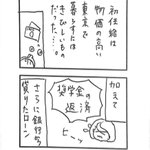 初任給は
物価の高い
東京で
暮らすには
きびしいもの
だった…。
加えて
奨学金の
返済
ヒーッ
さらに銀行から
借りたローン